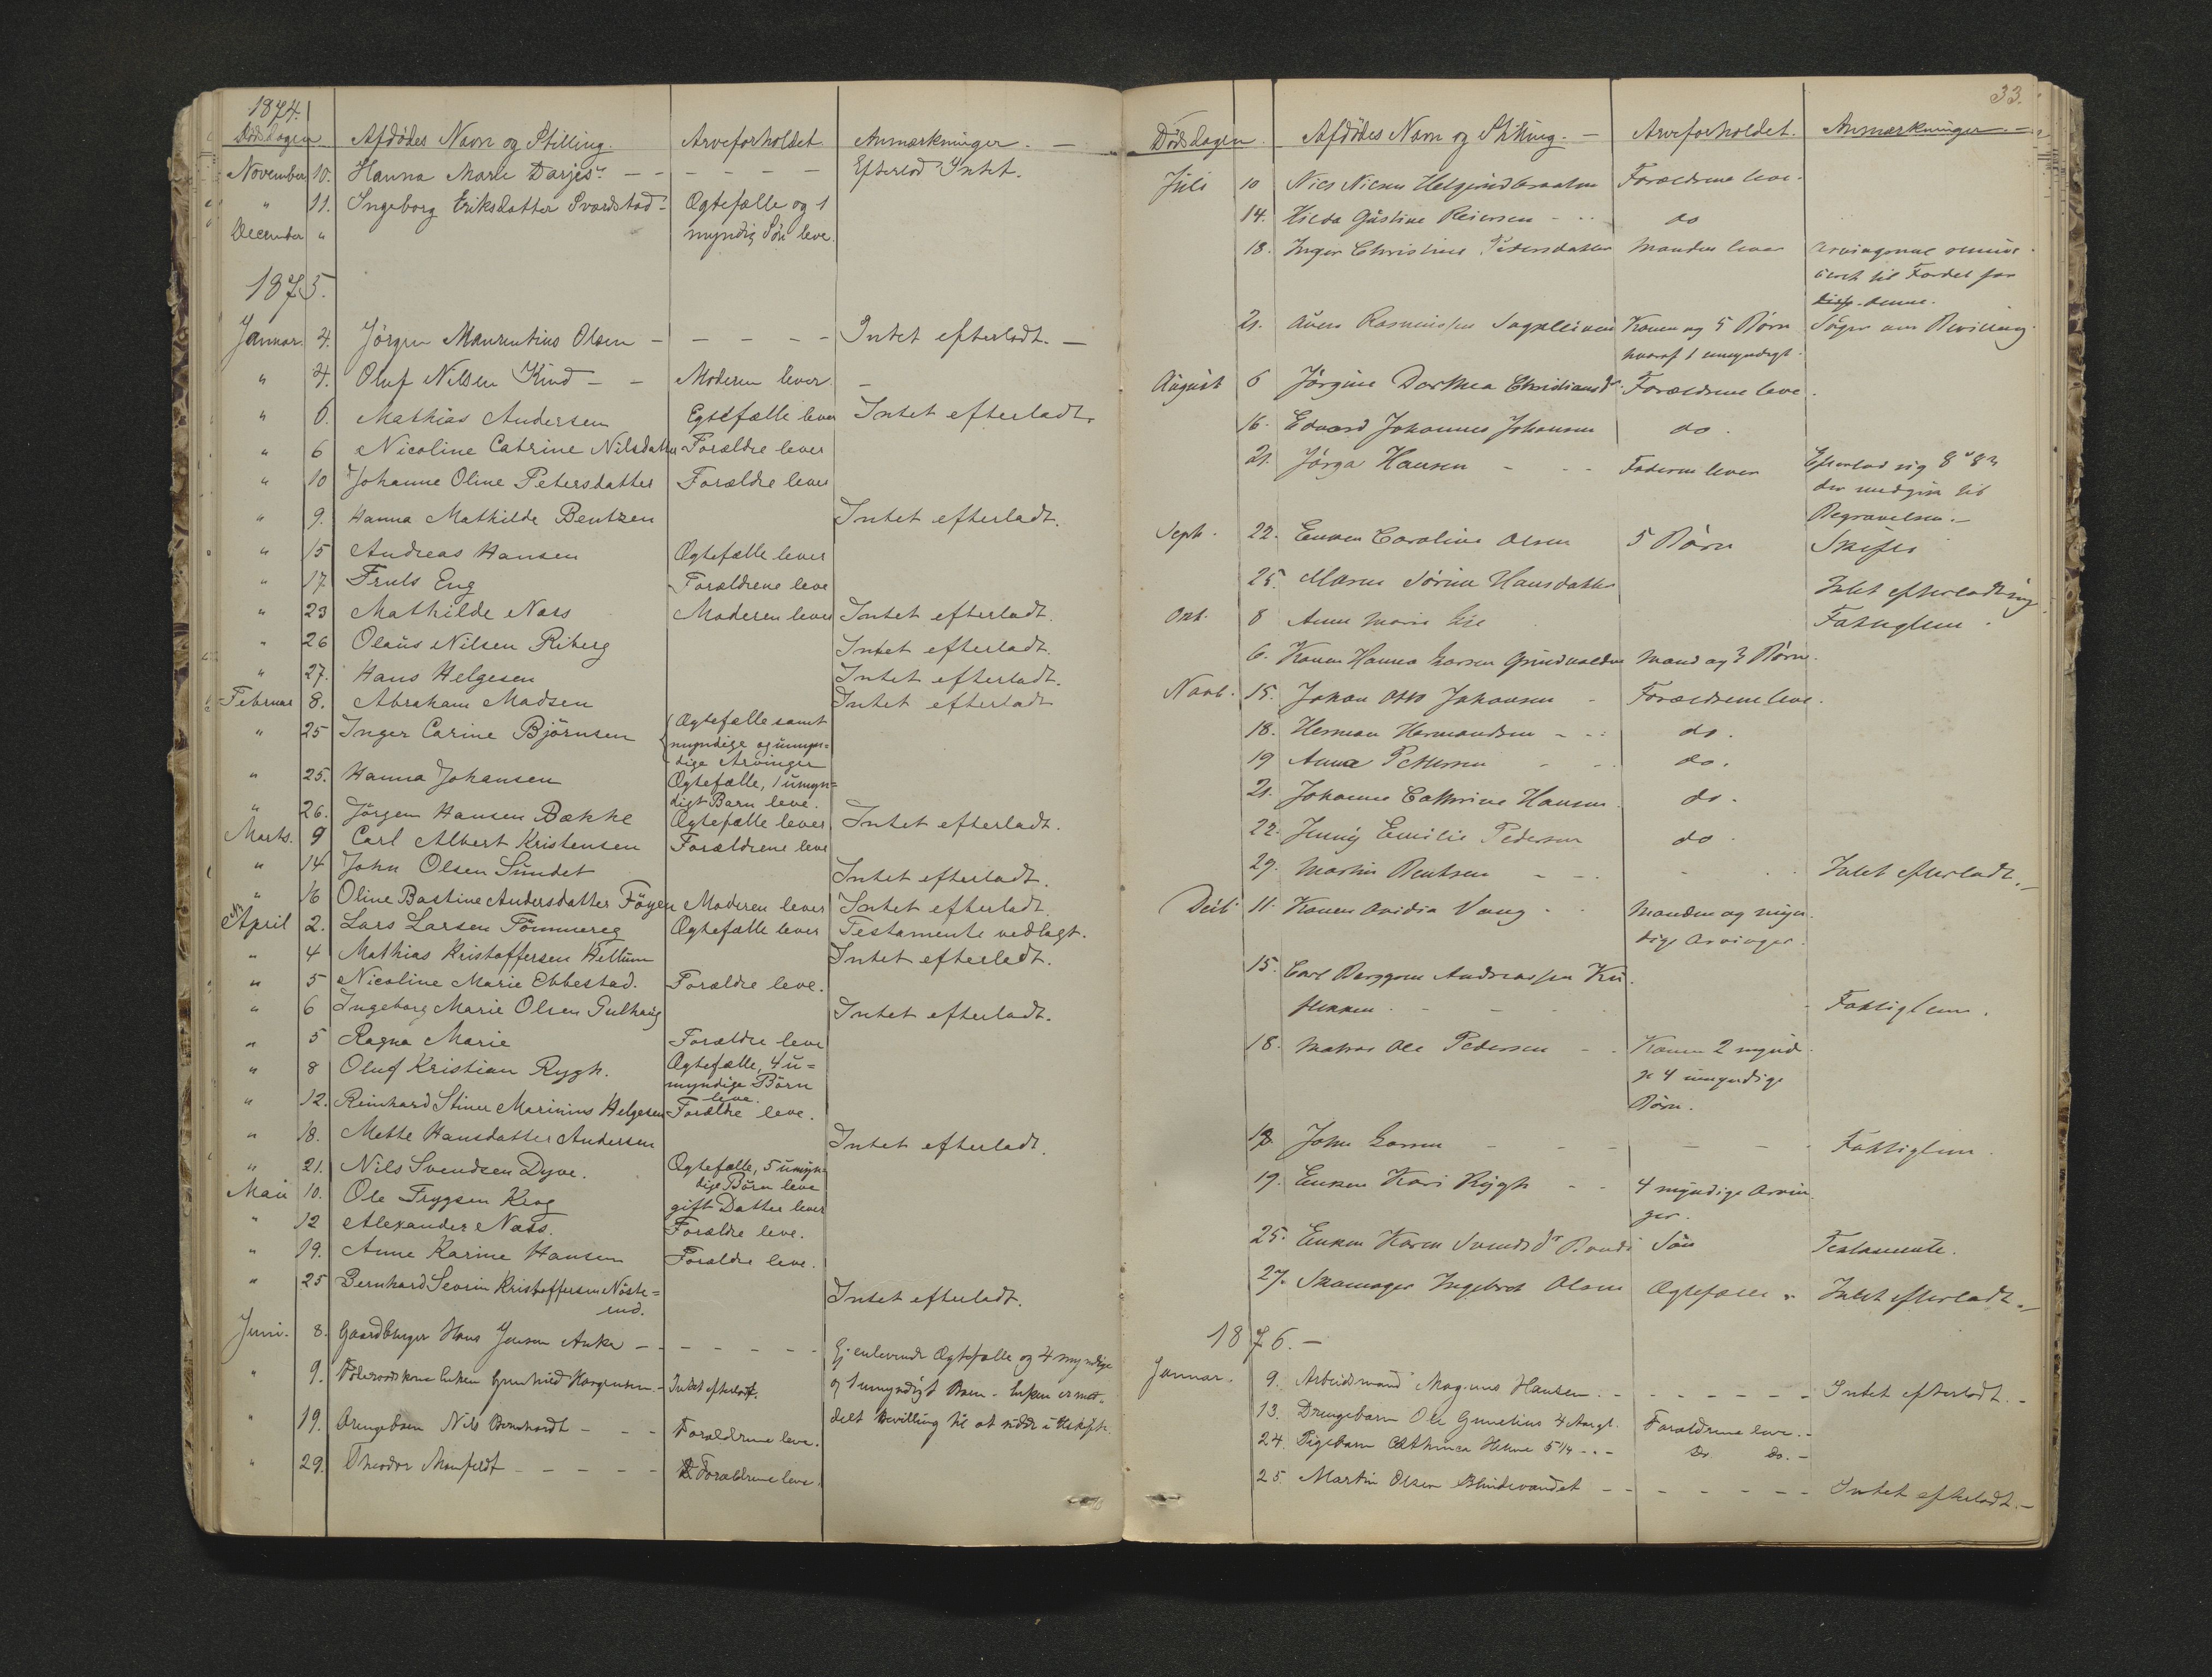 1874.
Dödsdagen Afdödes Navn og Stilling. Arveforholdet Anmærkninger. —
November 10. Hanna Marie Efterlod Intet.
" 11. Ingeborg Eriksdatter Svardstad - Ægtefælle og 1
December " myndig Sön leve.
1875.
Januar. 4. Jörgen Maurentius Olsen - - - - - Intet efterladt. —
" 4. Oluf Nilsen Kind - - Moderen lever. -
" 6. Mathias Andersen Egtefælle lever Intet efterladt.
" 6 Nicoline Catrine Nilsdatter Forældre lever
" 10 Johanne Oline Petersdatter Forældre lever
" 9. Hanna Mathilde Bentzen Intet efterladt.
" 15 Andreas Hansen Ægtefælle lever
" 17. Eng Forældrene leve
" 23 Mathilde Næss Moderen lever Intet efterladt.
" 26 Olaüs Nilsen Riberg Intet efterladt.
" 27. Hans Helgesen Intet efterladt.
Februar 8. Abraham Madsen Intet efterladt
" 25 Inger Carine Björnsen Ægtefælle samt
myndige og umyn=
dige Arvinger
" 25. Hanna Johansen Ægtefælle, 1 umyn=
digt Barn leve.
" 26. Jörgen Hansen Bække Ægtefælle lever Intet efterladt.
Marts. 9 Carl Albert Kristensen Forældrene leve
" 14 John Olsen Sundet Intet efterladt.
" 16 Oline Bastine Andersdatter Föyen Moderen lever Intet efterladt.
April 2. Lars Larsen Tömmereg Ægtefælle lever Testamente vedlagt.
" 4 Mathias Kristoffersen Hellum Intet efterladt.
" 5 Nicoline Marie Ebbestad. Forældre leve.
" 6 Ingeborg Marie Olsen Gulhaug Intet efterladt.
" 5 Ragna Marie Forældre leve
" 8 Oluf Kristian Rygh. Ægtefælle, 4 u=
myndige Börn
leve.
" 12. Reinhard Stiner Marinius Helgesen Forældre leve.
" 18. Mette Hansdatter Andersen Intet efterladt.
" 21. Nils Svendsen Dyve. Ægtefælle, 5 umyn=
dige Börn leve
Maii 10. Ole Trygsen Krog gift Datter lever
" 12 Alexander Næss. Forældre leve.
" 19. Anne Karine Hansen Forældre leve.
" 25 Bernhard Severin Kristoffersen Nöste=
rud. Intet efterladt.
Juni. 8. Gaardbruger Hans Jensen - - - - - - Gj. enlevende Ægtefælle og 4 myndige
" 9. Enken Gunhild Horgensen. - Intet efterladt. og 1 umyndigt Barn. Enken er med-
" 19. Drengebarn Nils Bernhardt - - - Forældrene leve. delt Bevilling til at sidde i Uskifte.
" 29. Theodor - - - - - Forældrene leve.
33.
Dödsdagen. Afdödes Navn og Stilling. — Arveforholdet. Anmærkninger. —
Juli 10 Nils Nilsen Forældrene leve.
14. Hilda Gustine Reiersen - - - do
18. Inger Christine Petersdatter Manden lever Arvingerne
til Fordel for
denne.
21. Rasmussen Konen og 5 Börn Söger om Bevilling.
hvoraf 1 umyndigt.
August 6 Jörgine Dorthea Christiansdr. Forældrene leve.
16. Edvard Johannes Johansen do.
21. Jörga Hansen - - - Faderen lever Efterlod sig
der medgik til
Begravelsen. -
Septb. 22. Enken Caroline Olsen 5 Börn Skiftes
25. Maren Sörine Hansdatter Intet efterladt sig.
Okt. 8 Anne Marie Lie Fattiglem.
6. Konen Hanna Larsen Mand og 3 Börn.
Novb. 15. Johan Otto Johansen - Forældrene leve.
18. Herman Hermandsen - - - do.
19 Anna Pettersen - - do.
21. Johanne Cathrine Hansen. do.
22. Jenny Emilie Pedersen do.
29. Martin Bentsen - - - - Intet efterladt. -
Decb. 11. Konen Ovidia Vang - - Manden og myn.
dige Arvinger.
15. Carl Andreassen
- - - Fattiglem.
18. Matros Ole Pedersen - - Konen 2 mynd.
og 4 umyndige
Börn.
18. John Larsen - - - - - - Fattiglem.
19. Enken Kari Rygh - - 4 myndige Arvin.
ger.
25. Enken Karen Svendsdr Sön Testamente.
27. Skomager Ingebret Olsen Ægtefælle Intet efterladt. -
1876. —
Januar. 9. Arbeidsmand Magnus Hansen. - - - - - - Intet efterladt. -
13. Drengebarn Ole 4 Aargl. Forældrene leve. -
24. Pigebarn 5 1/4 - - - Do. do. -
25. Martin Olsen Blindevandet - - - - - - - Intet efterladt. -